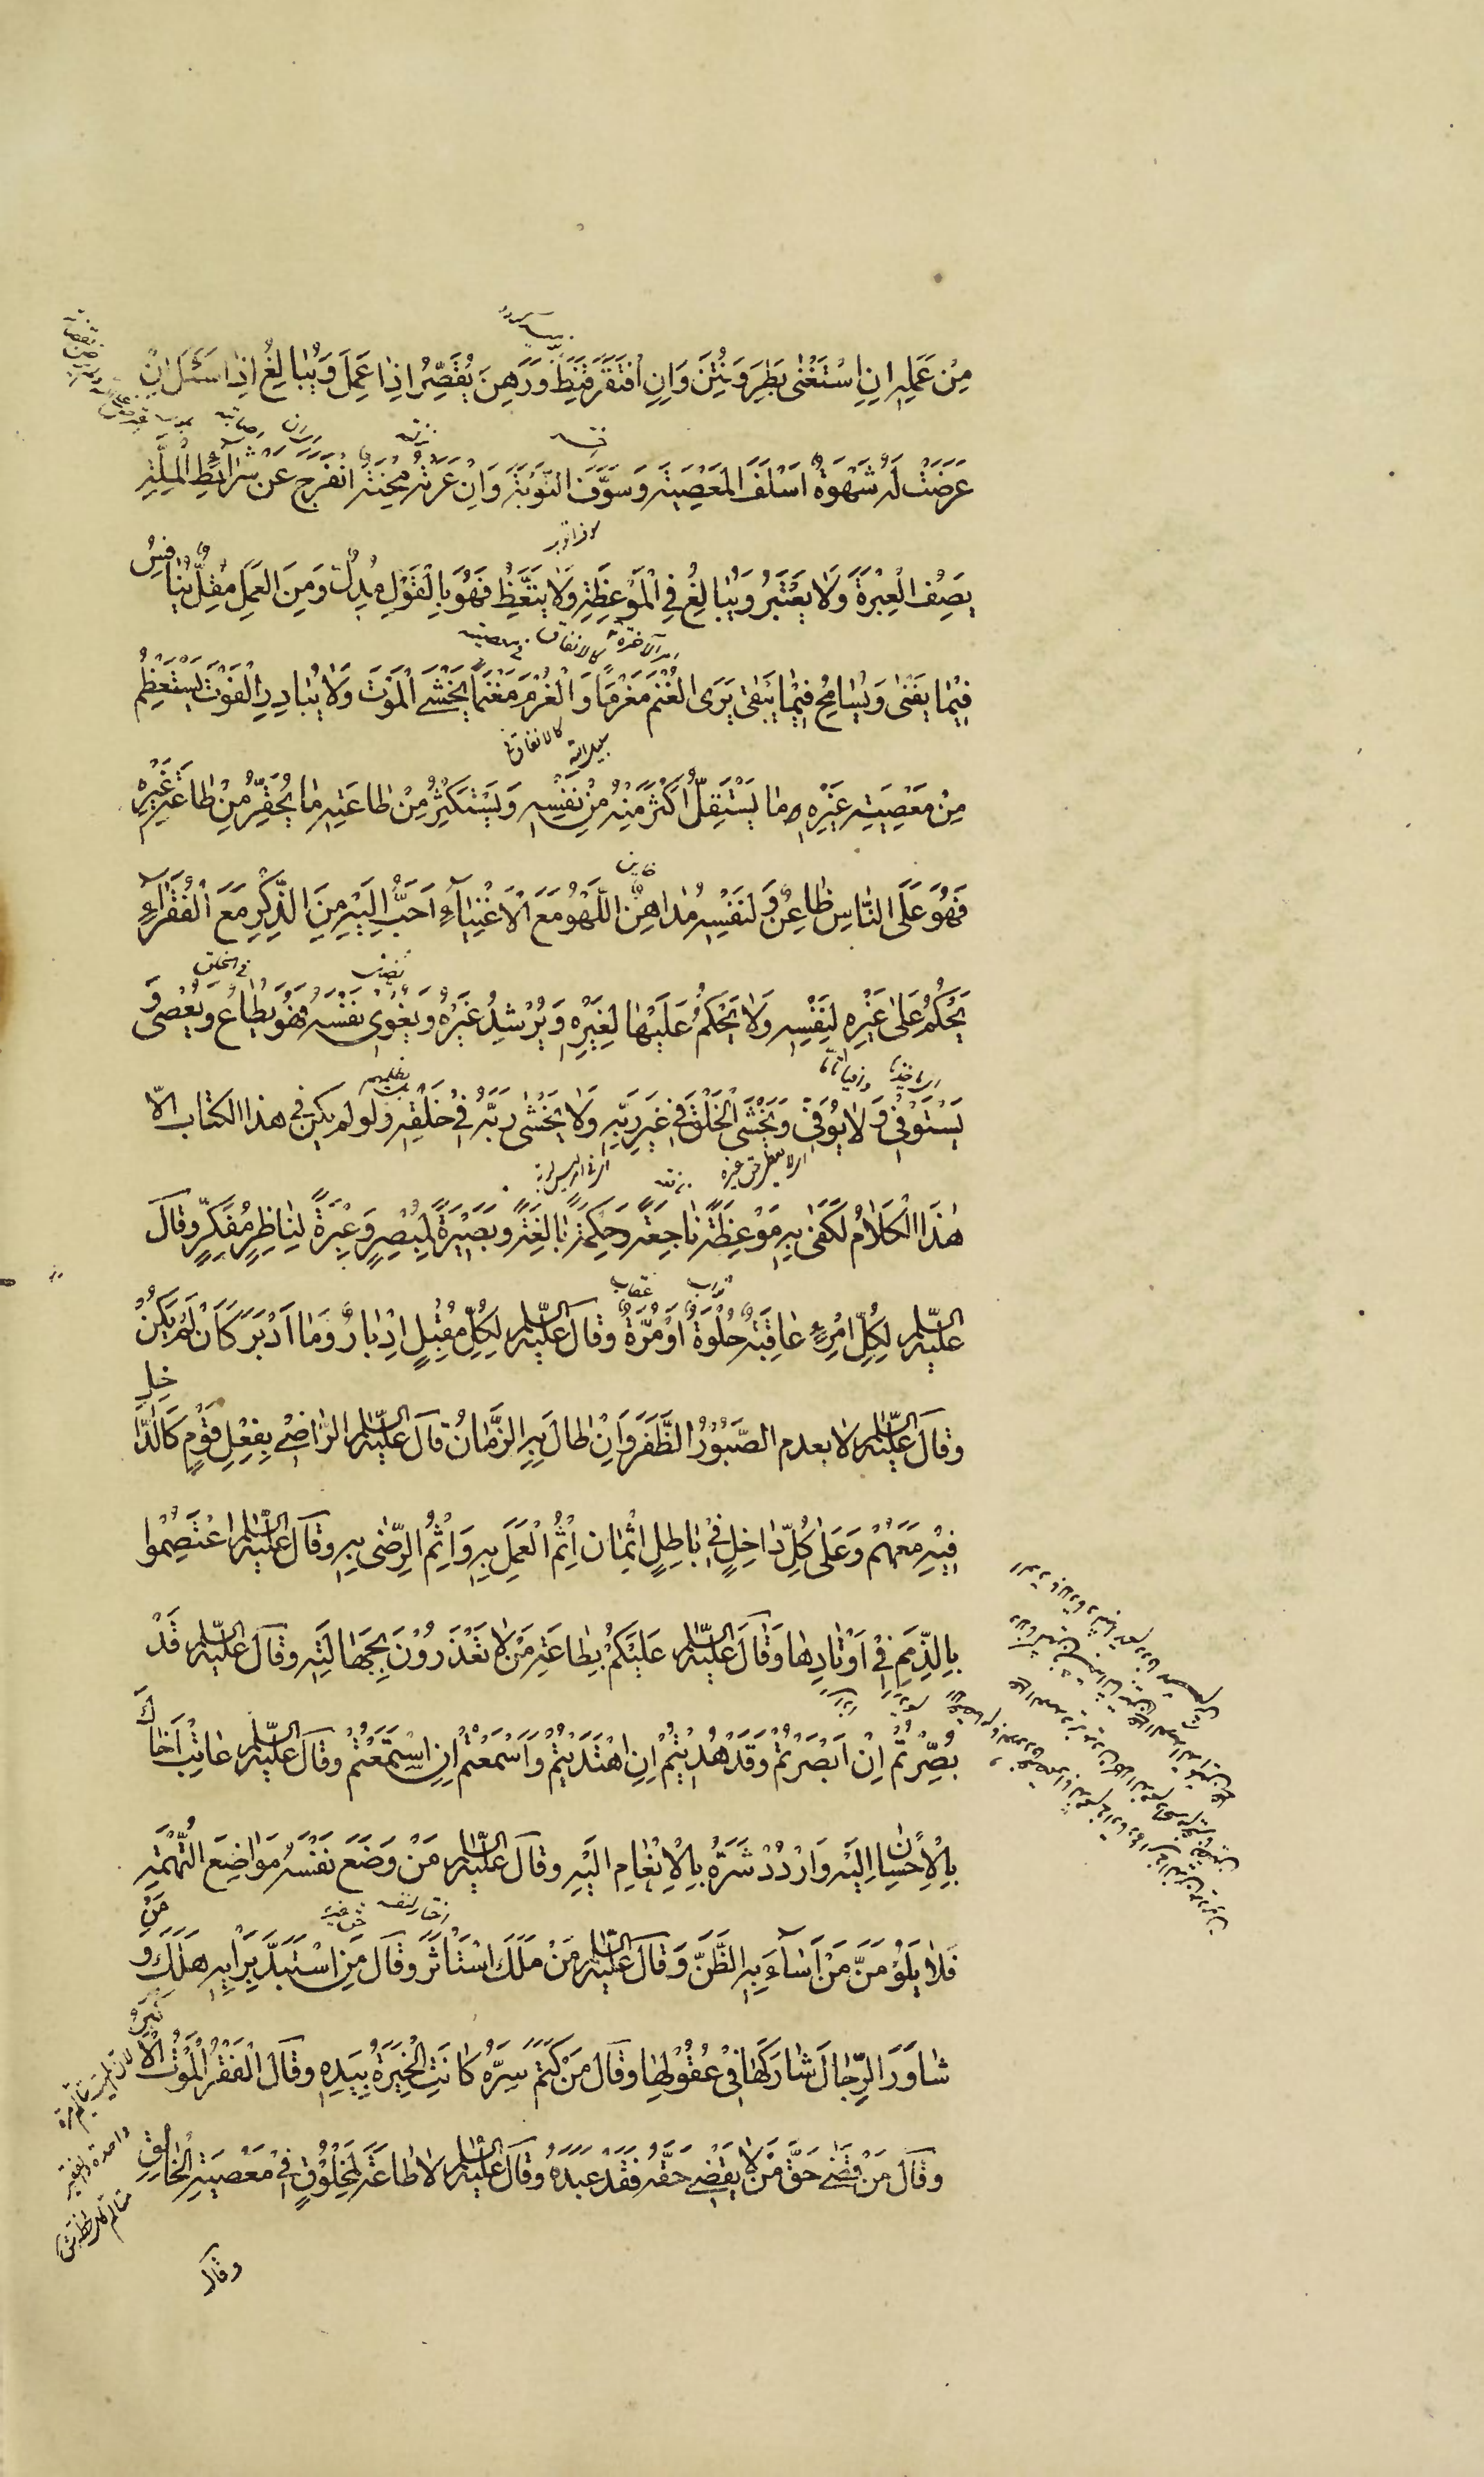 مِنْ عَمَلِهِ اِنِ اسْتَغْنٰى بَطِرَ وَفُتِنَ وَاِنِ افْتَقَرَ قَنَطَ وَوَهَنَ يُقَصِّرُ اِذَا عَمِلَ وَيُبَالِغُ اِذَا سَئَلَ اِنْ
عَرَضَتْ لَهُ شَهْوَةٌ اَسْلَفَ الْمَعْصِيَةَ وَسَوَّفَ التَّوْبَةَ وَاِنْ عَرَتْهُ مِحْنَةٌ انْفَرَجَ عَنْ شَرَآئِطِ الْمِلَّةِ
يَصِفُ الْعِبْرَةَ وَلَا يَعْتَبِرُ وَيُبَالِغُ فِي الْمَوْعِظَةِ وَلَا يَتَّعِظُ فَهُوَ بِالْقَوْلِ مُدِلٌّ وَمِنَ الْعَمَلِ مُقِلٌّ يُنَافِسُ
فِيْمَا يَفْنٰى وَيُسَامِحُ فِيْمَا يَبْقٰى يَرَى الْغُنْمَ مَغْرَمًا وَالْغُرْمَ مَغْنَمًا يَخْشَى الْمَوْتَ وَلَا يُبَادِرُ الْفَوْتَ يَسْتَعْظِمُ
مِنْ مَعْصِيَةِ غَيْرِهِ مَا يَسْتَقِلُّ اَكْثَرَ مِنْهُ مِنْ نَفْسِهِ وَيَسْتَكْثِرُ مِنْ طَاعَتِهِ مَا يُحَقِّرُ مِنْ طَاعَةِ غَيْرِهِ
فَهُوَ عَلَى النَّاسِ طَاعِنٌ وَلِنَفْسِهِ مُدَاهِنٌ اللَّهْوُ مَعَ الْاَغْنِيَآءِ اَحَبُّ اِلَيْهِ مِنَ الذِّكْرِ مَعَ الْفُقَرَآءِ
يَحْكُمُ عَلٰى غَيْرِهِ لِنَفْسِهِ وَلَا يَحْكُمُ عَلَيْهَا لِغَيْرِهِ وَيُرْشِدُ غَيْرَهُ وَيُغْوِيْ نَفْسَهُ فَهُوَ يُطَاعُ وَيَعْصِيْ وَ
يَسْتَوْفِيْ وَلَا يُوْفِيْ وَيَخْشَى الْخَلْقَ فِيْ غَيْرِ رَبِّهِ وَلَا يَخْشٰى رَبَّهُ فِيْ خَلْقِهِ ولو لم يكن في هذا الكتاب الّا
هٰذَا الْكَلَامُ لَكَفٰى بِهِ مَوْعِظَةً نَاجِعَةً وَحِكْمَةً بَالِغَةً وبَصِيْرَةً لِمُبْصِرٍ وَعِبْرَةً لِنَاظِرٍ مُفَكِّرٍ وقَالَ
عليه السّلم لِكُلِّ امْرِءٍ عَاقِبَةٌ حُلْوَةٌ اَوْ مُرَّةٌ وقال عليه السّلم لِكُلِّ مُقْبِلٍ اِدْبَارٌ وَمَا اَدْبَرَ كَاَنْ لَمْ يَكُنْ
وقَالَ عليه السّلم لا يعدم الصَّبُوْرُ الظَّفَرَ وَاِنْ طَالَ بِهِ الزَّمَانُ قَالَ عليه السّلم الرَّاضِيْ بِفِعْلِ قَوْمٍ كَالدَّاخِلِ
فِيْهِ مَعَهُمْ وَعَلٰى كُلِّ دَاخِلٍ فِيْ بَاطِلٍ اِثْمَانِ اِثْمُ الْعَمَلِ بِهِ وَاِثْمُ الرِّضٰى بِهِ وقَالَ عليه السّلم اعْتَصِمُوا
بِالذِّمَمِ فِيْ اَوْتَادِهَا وَقَالَ عليه السّلم عَلَيْكُمْ بِطَاعَةِ مَنْ لَا تُعْذَرُوْنَ بِجَهَالَتِهِ وقَالَ عليه السّلم قَدْ
بُصِّرْتُمْ اِنْ اَبْصَرْتُمْ وَقَدْ هُدِيْتُمْ اِنِ اهْتَدَيْتُمْ وَاُسْمِعْتُمْ اِنِ اسْتَمَعْتُمْ وقَالَ عليه السّلم عَاتِبْ اَخَاكَ
بِالْاِحْسَانِ اِلَيْهِ وَارْدُدْ شَرَّهُ بِالْاِنْعَامِ اِلَيْهِ وقَالَ عليه السّلم مَنْ وَضَعَ نَفْسَهُ مَوَاضِعَ التُّهْمَةِ
فَلَا يَلُوْمَنَّ مَنْ اَسَآءَ بِهِ الظَّنَّ وَقَالَ عليه السّلم مَنْ مَلَكَ اسْتَأْثَرَ وقَالَ مَنِ اسْتَبَدَّ بِرَأْيِهِ هَلَكَ وَمَنْ
شَاوَرَ الرِّجَالَ شَارَكَهَا فِيْ عُقُوْلِهَا وقَالَ مَنْ كَتَمَ سِرَّهُ كَانَتِ الْخِيَرَةُ بِيَدِهِ وقَالَ الْفَقْرُ الْمَوْتُ الْاَكْبَرُ
وقَالَ مَنْ قَضٰى حَقَّ مَنْ لَا يَقْضِيْ حَقَّهُ فَقَدْ عَبَدَهُ وقَالَ عليه السّلم لَا طَاعَةَ لِمَخْلُوْقٍ فِيْ مَعْصِيَةِ الْخَالِقِ
وقال